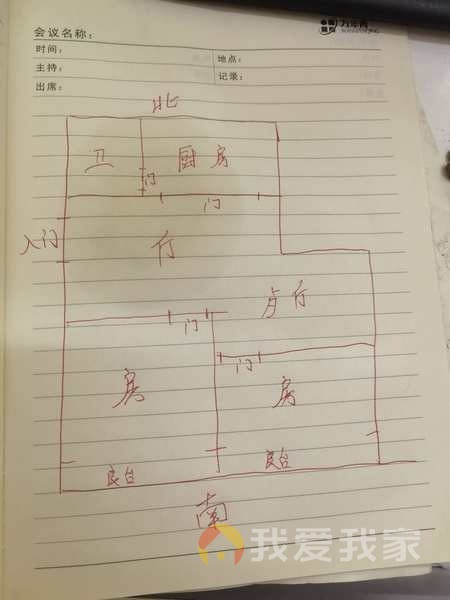 会议名称：
时间：
地点：
主持：
记录：
出席：
北
卫
厨房
门
门
入门
厅
厅
门
门
房
房
阳台
阳台
南
我爱我家